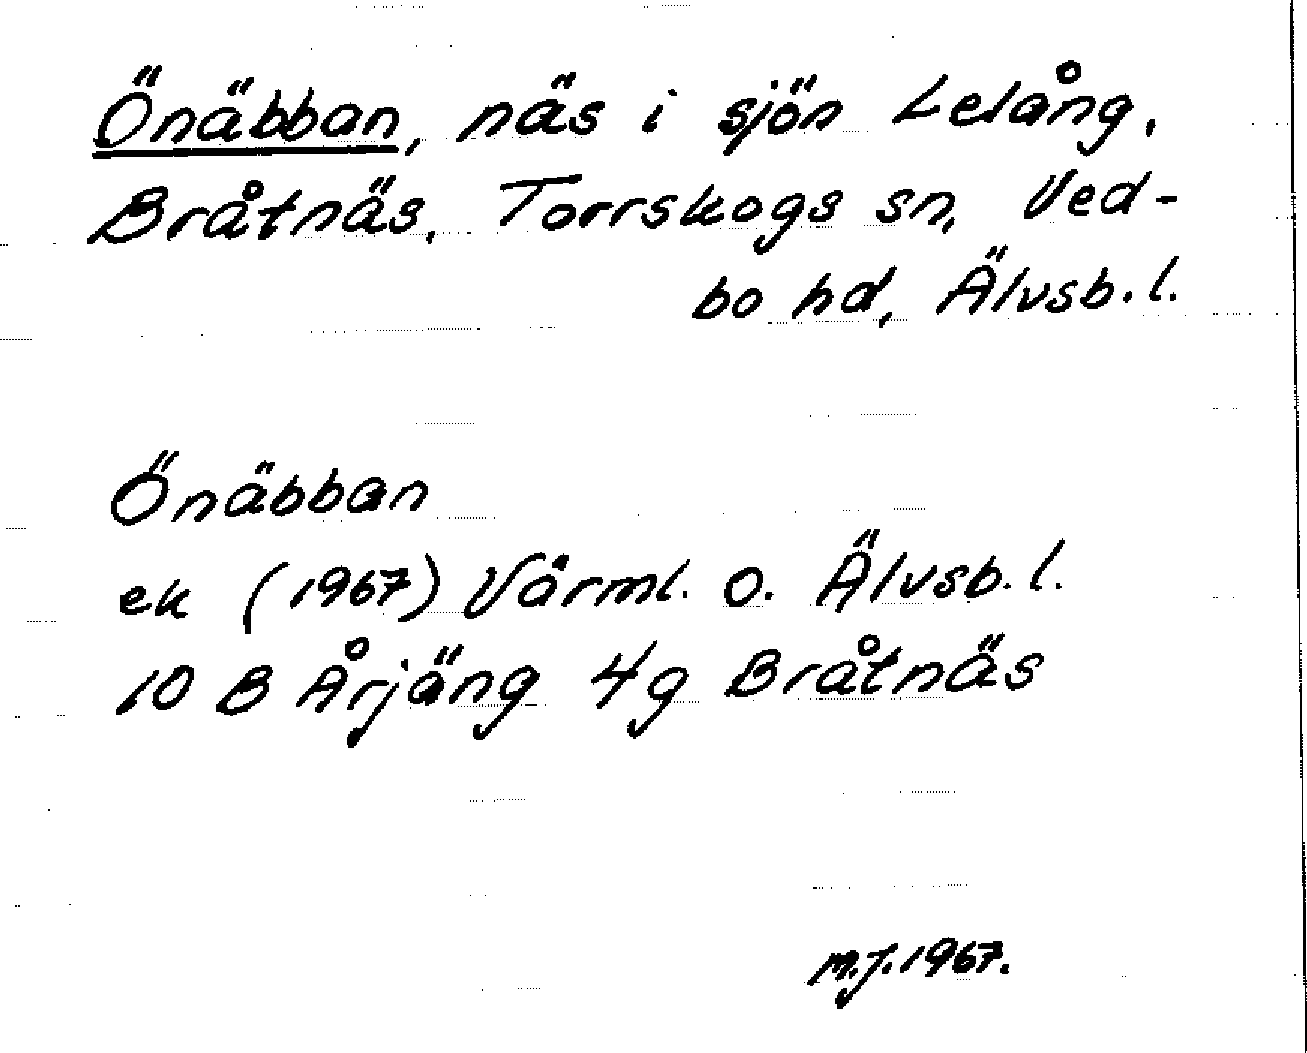 Önäbban, näs i sjön Lelång,
Bråtnäs, Torrskogs sn, Ved-
bo hd, Älvsb. l.
Önäbban
ek (1967) Värml. o. Älvsb. l.
10 B Årjäng 4g Bråtnäs
M.J. 1967.